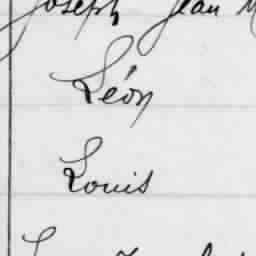 Joseph Jean M
Léon
Louis